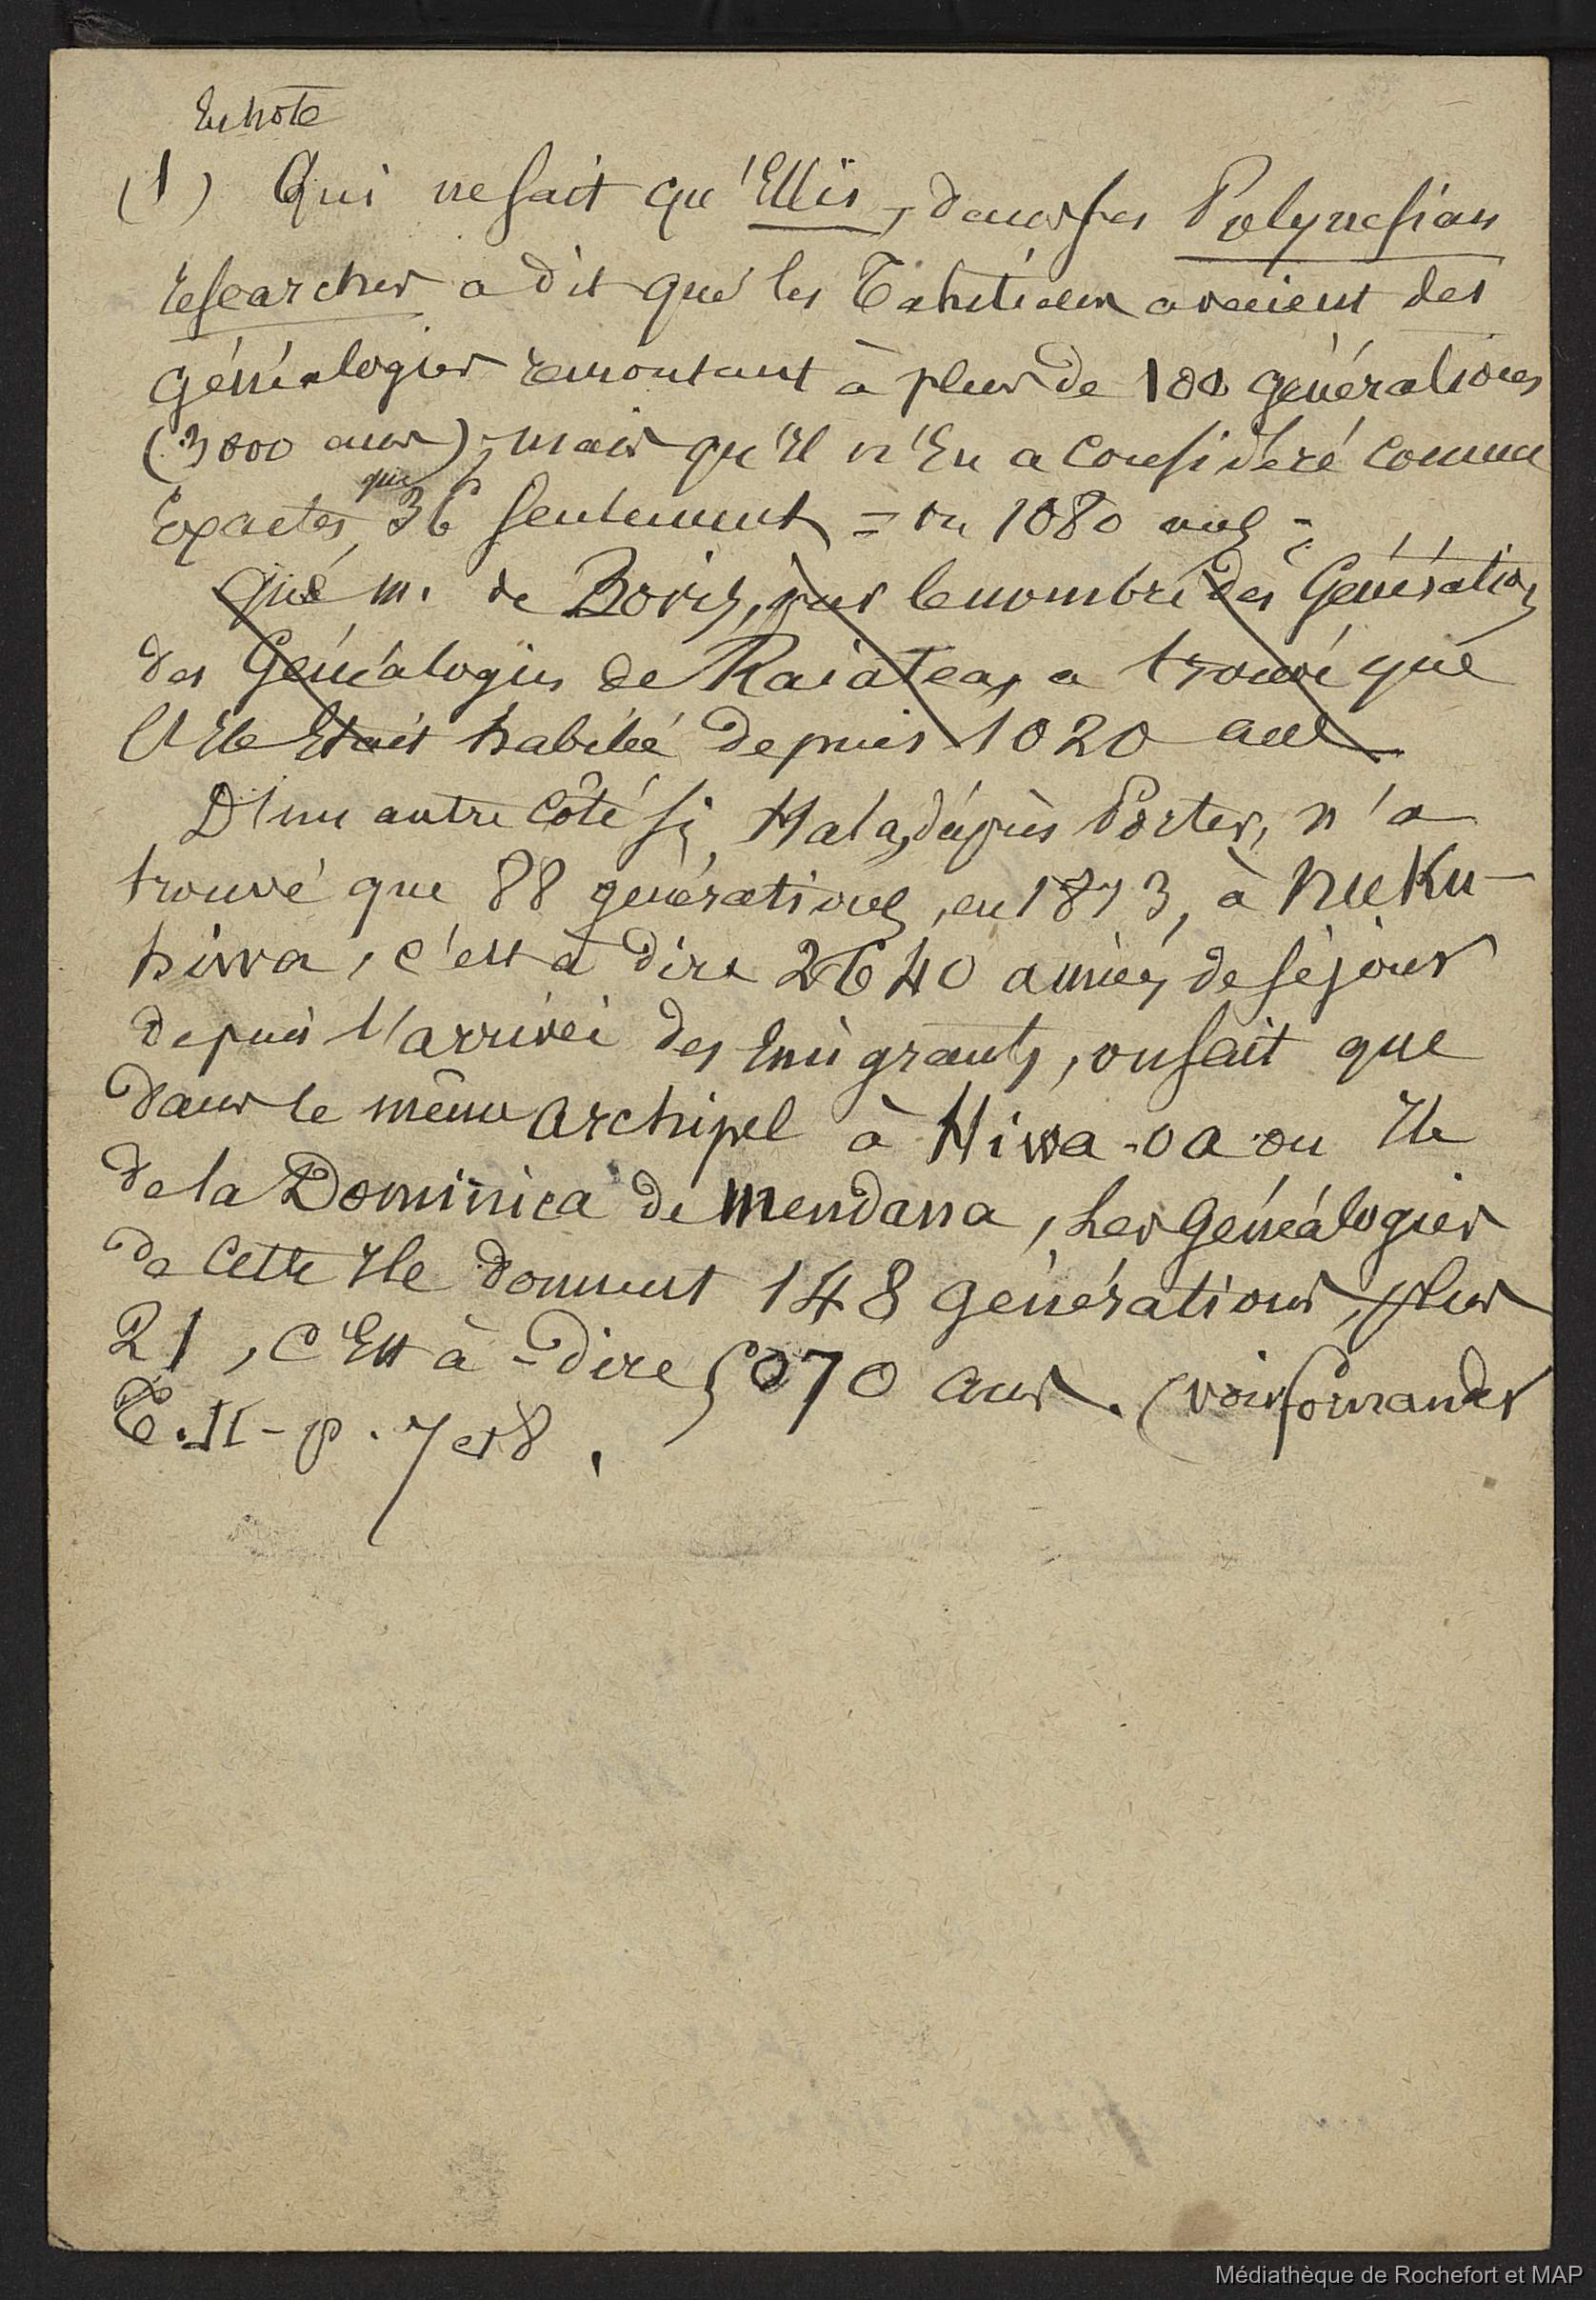 En note
(1) Qui ne sait qu'Ellis, dans ses Polynesian
researches a dit que les Tahitiens avaient des
généalogies remontant à plus de 100 générations
(3000 ans); mais qu'il n'en a considéré comme
Exactes, que 36 seulement = ou 1080 ans =;
que m. de Bovis, par le nombre des Générations
des Généalogies de Raiatea, a trouvé que
l'Ile était habitée depuis 1020 ans
D'un autre côté si, Hala, d'après Porter, n'a
trouvé que 88 générations, en 1813, à Nuku-
hiva, c'est à dire 2640 années de séjour
depuis l'arrivée des Emigrants, on sait que
dans le même archipel à Hiwa-oa ou Ile
de la Dominica de Mendana, les Généalogies
de cette Ile donnent 148 générations, plus
21, c'Est à-dire 5070 ans. (voir fornander
T. II - p. 7 et 8.
Médiathèque de Rochefort et MAP